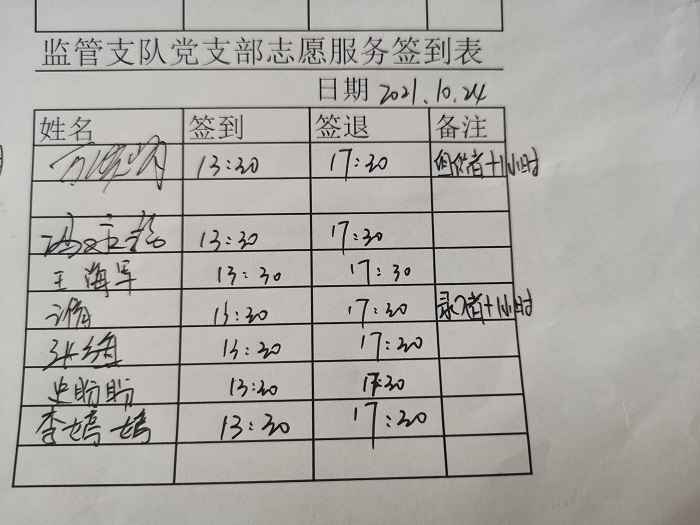 监管支队党支部志愿服务签到表
日期 2021.10.24
姓名 签到 签退 备注
13:30 17:30 组织者+1小时
13:30 17:30
王海军 13:30 17:30
13:30 17:30 录入者+1小时
13:30 17:30
史盼盼 13:30 17:30
李嫣嫣 13:30 17:30